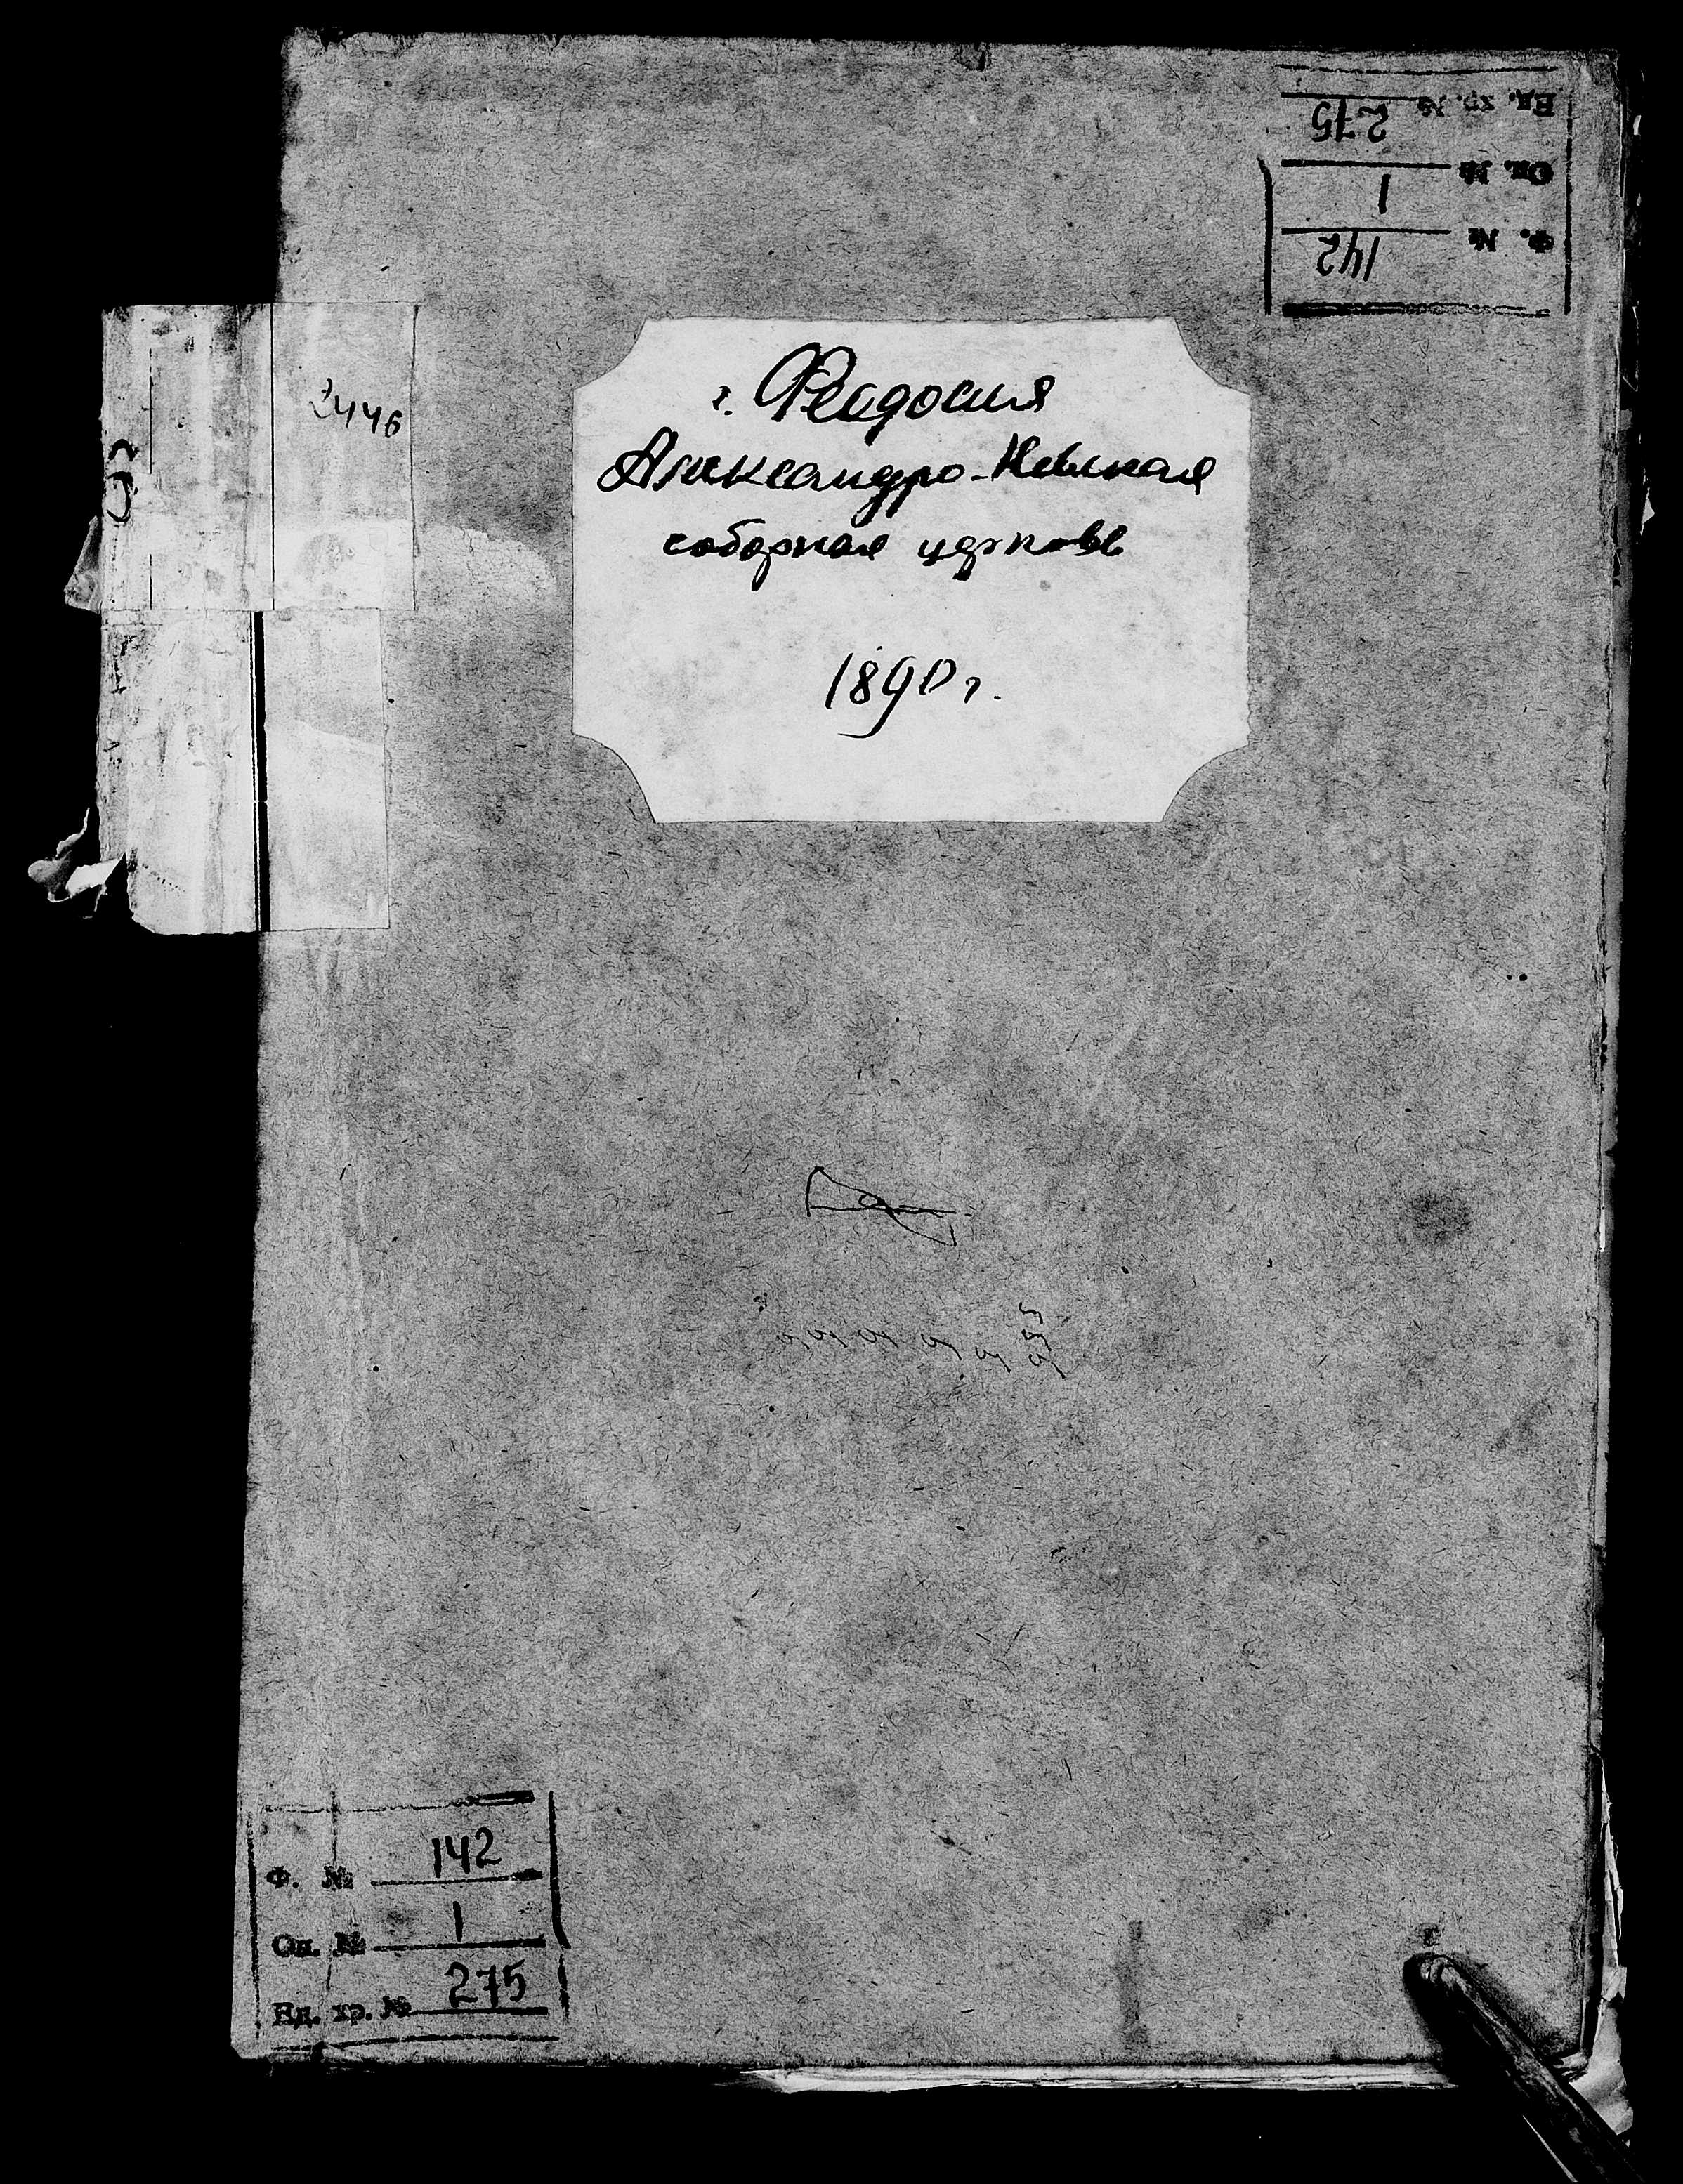 Ед. хр. № 275
Оп. № 1
Ф. № 142
2446
г. Феодосия
Александро-Невская
соборная церковь
1890 г.
Ф. № 142
Оп. № 1
Ед. хр. № 275